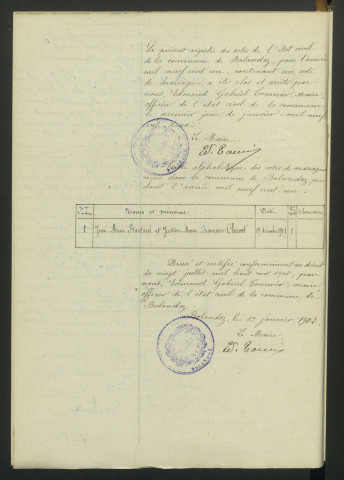 Le présent registre des actes de l'état civil
de la commune de Bolandoz, pour l'année
mil neuf cent un, contenant un acte
de mariage, a été clos et arrêté par
nous, Edmond Gabriel Tournier, Maire,
officier de l'état civil de la commune
le premier jour de janvier mil neuf
cent deux.
Le Maire
Ed. Tournier
alphabétique des actes de mariage
reçus dans la commune de Bolandoz, pen
dant l'année mil neuf cent un.
Noms et prénoms Date
1 Jean et Marie Françoise 1901 1
Dressé et certifié conformément au décret
du vingt juillet mil huit cent sept, par
nous, Edmond Gabriel Tournier, maire
officier de l'état civil de la commune de
Bolandoz
Bolandoz, le 1er janvier 1902
Le Maire
Ed. Tournier